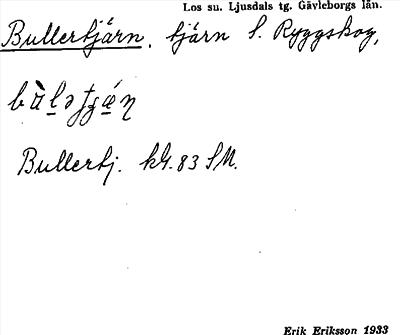 Los su. Ljusdals tg. Gävleborgs län.
Bullertjärn, tjärn S. Ryggskog,
Bullertj. kG. 83 SM.
Erik Eriksson 1933